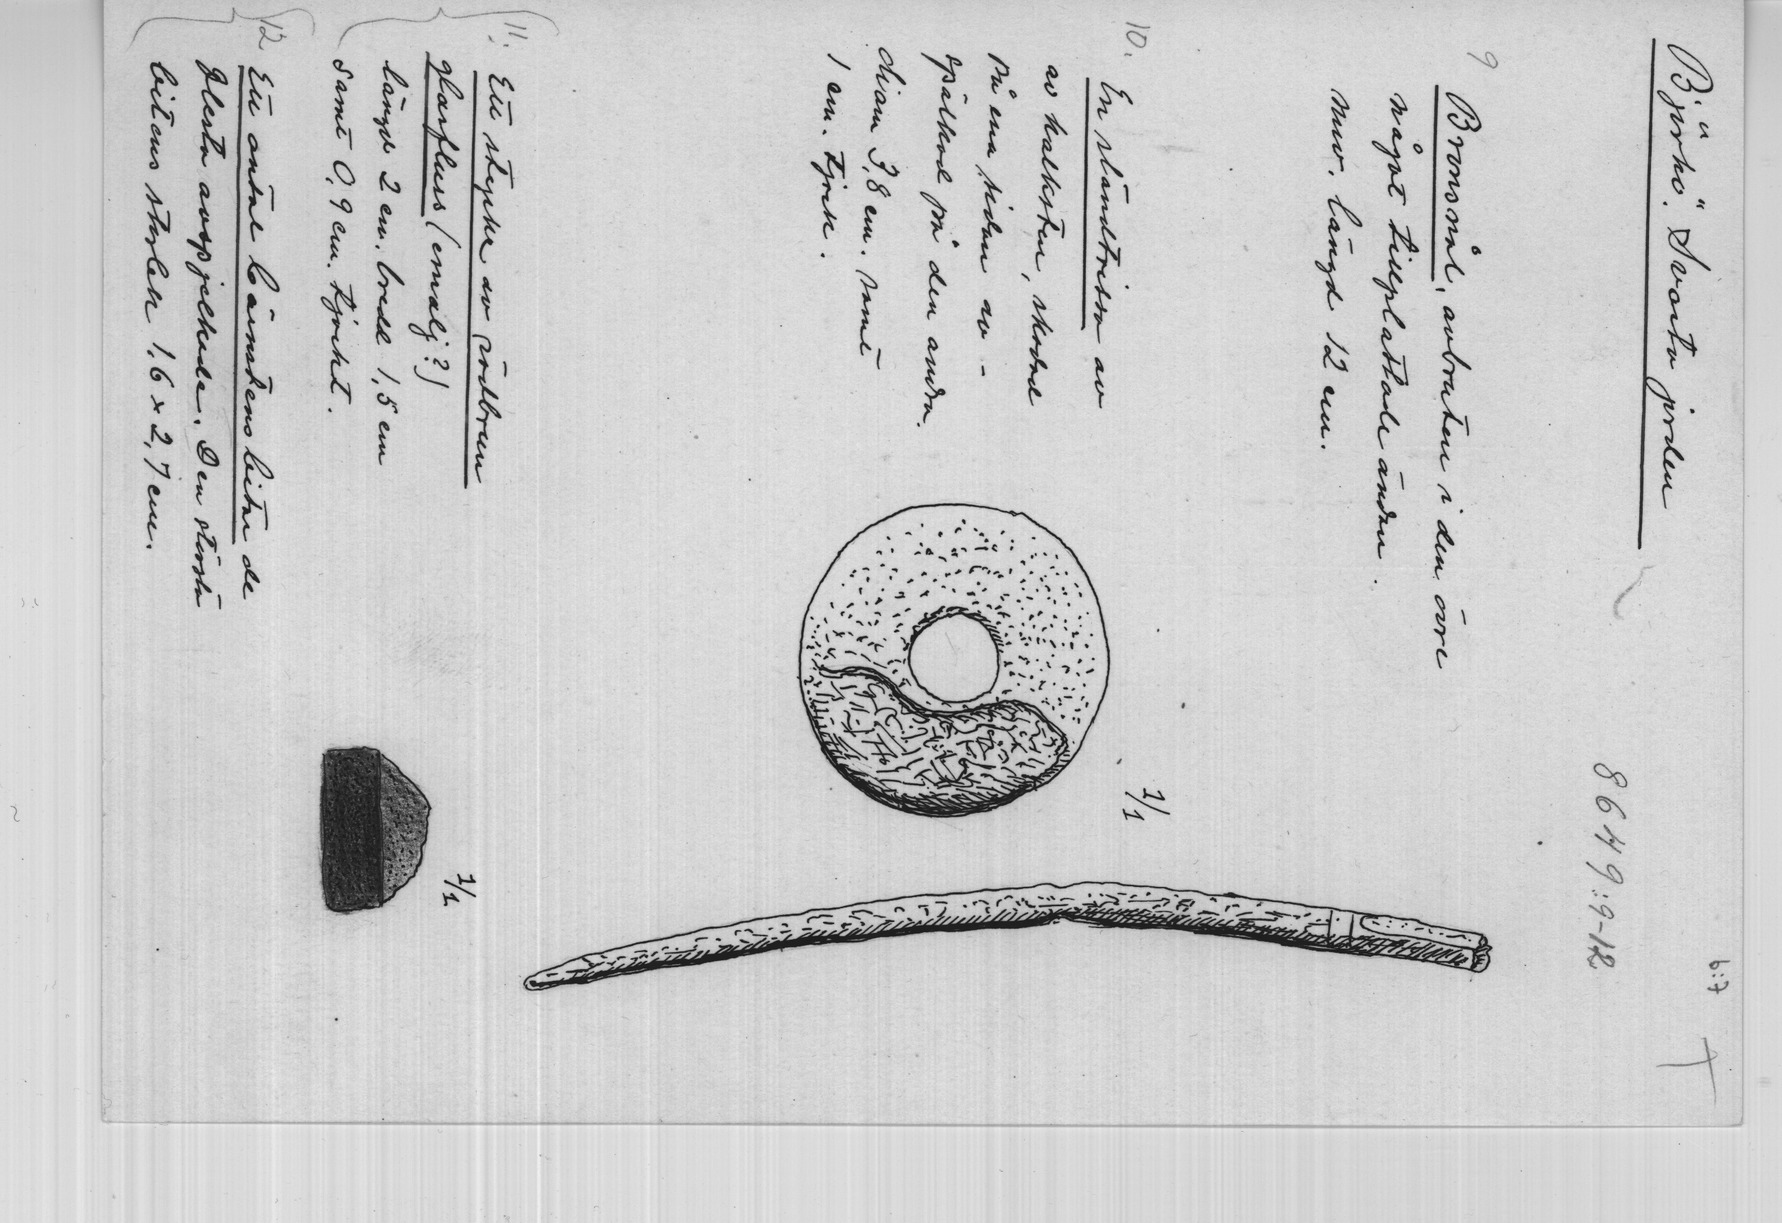 Björkö. "Svarta jorden"
8649:9-12
b:7
9
Bronsnål, avbruten i den övre
något tillplattade änden.
Nuv. längd 12 cm.
10.
En sländtrissa av
av kalksten, skadad
På ena sidan av-
spälkad på den andra.
diam 3,8 cm. samt
1 cm. tjock.
1/1
11.
Ett stycke av rödbrun
glasfluss (emalj?)
längd 2 cm. bredd 1,5 cm
samt 0,9 cm. tjockt.
1/1
12
Ett antal bärnstensbitar de
flesta avspjälkade. Den största
bitens storlek 1,6 x 2,7 cm.